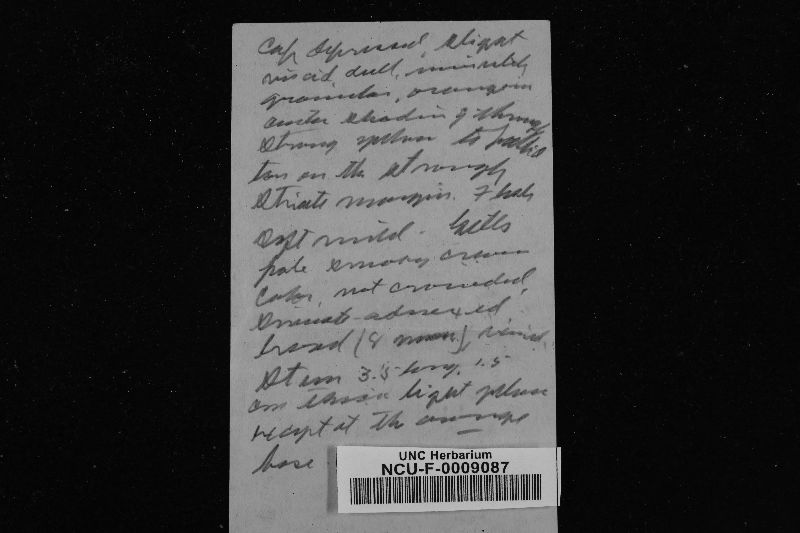 Cap depressed, slight
viscid dull, minutely
granular, orange in
center shading through
strong yellow to pallid
tan on the strongly
striate margin. Flesh
soft mild. Gills
pale smoky cream
color, not crowded,
sinuate-adnexed
broad (8 mm.)
Stem 3.5 long, 1.5
cm thick light yellow
except at the orange
base
UNC Herbarium
NCU-F-0009087